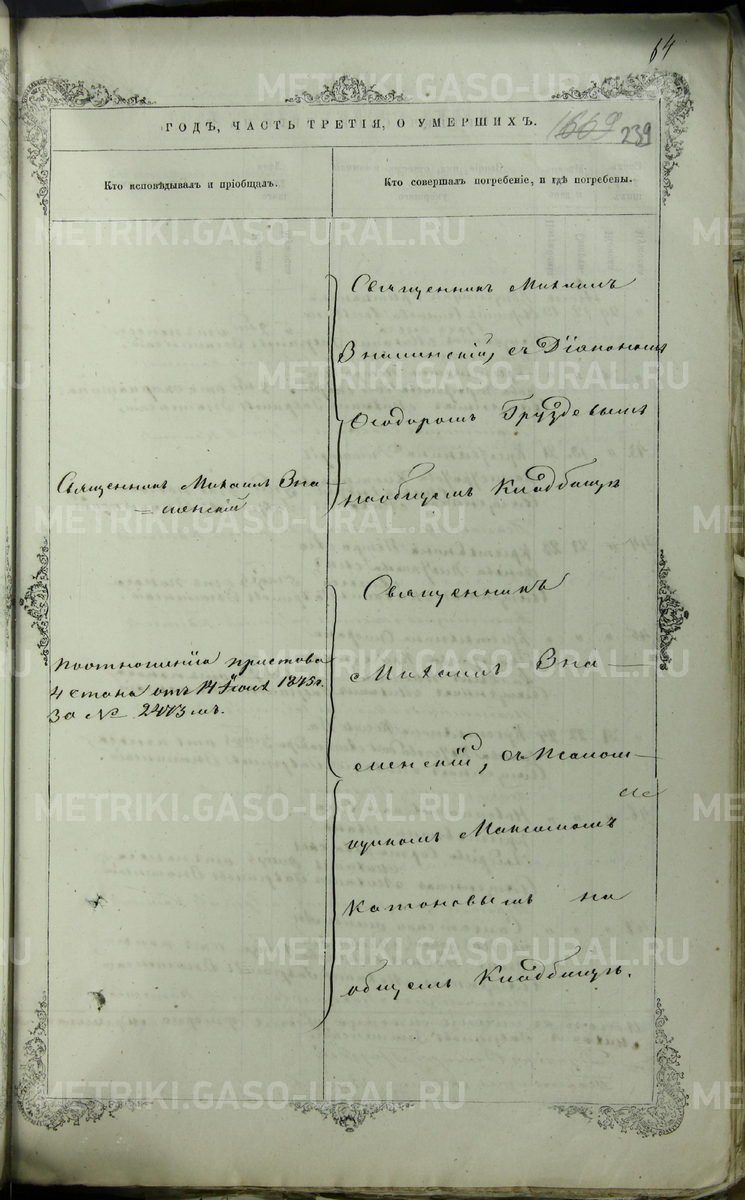 64
ГОДЪ, ЧАСТЬ ТРЕТІЯ, О УМЕРШИХЪ.
669 239
Кто исповѣдывалъ и пріобщалъ.
Кто совершалъ погребеніе, и гдѣ погребены.
Священникъ Михаилъ
Знаменскій, съ Діакономъ
Ѳеодоромъ Груздевымъ
на общемъ Кладбищѣ
Священникъ Михаилъ Зна
=менскій
Священникъ
Михаилъ Зна—
менскій, съ Псалом—
щикомъ Максимомъ
Катоновымъ на
общемъ Кладбищѣ.
По отношенію пристава
4 стана отъ 14 Іюля 1875 г.
За № 2473мъ.
METRIKI.GASO-URAL.RU